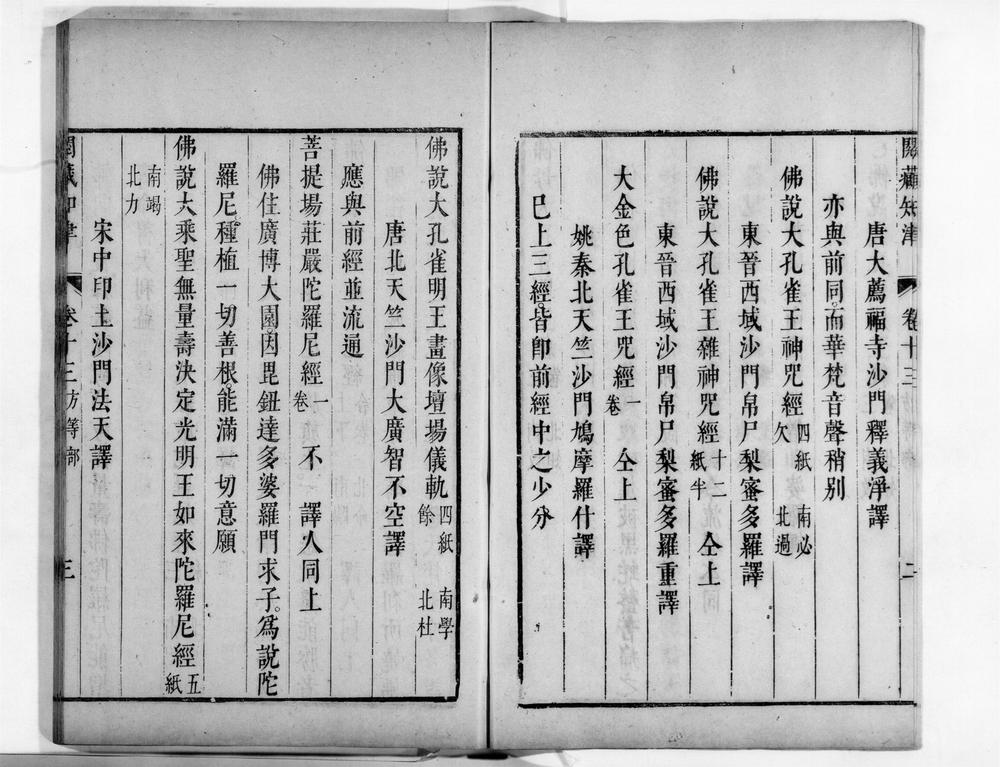 閱藏知津 卷十三 方等部 二
唐大薦福寺沙門釋義淨譯
亦與前同。而華梵音聲稍别
佛說大孔雀王神咒經 四紙欠 南必北過
東晉西域沙門帛尸梨蜜多羅譯
佛說大孔雀王雜神咒經 十二紙半 仝上
東晉西域沙門帛尸梨蜜多羅重譯
大金色孔雀王咒經 一卷 仝上
姚秦北天竺沙門鳩摩羅什譯
已上三經。皆卽前經中之少分
佛說大孔雀明王畫像壇場儀軌 四紙餘 南學北杜
唐北天竺沙門大廣智不空譯
應與前經並流通
菩提場莊嚴陀羅尼經 一卷 不 譯人同上
佛住廣博大園。因毘鈕達多婆羅門求子。爲說陀
羅尼。種植一切善根。能滿一切意願
佛說大乘聖無量壽決定光明王如來陀羅尼經 五紙
南竭北力
宋中印土沙門法天譯
閱藏知津 卷十三 方等部 三